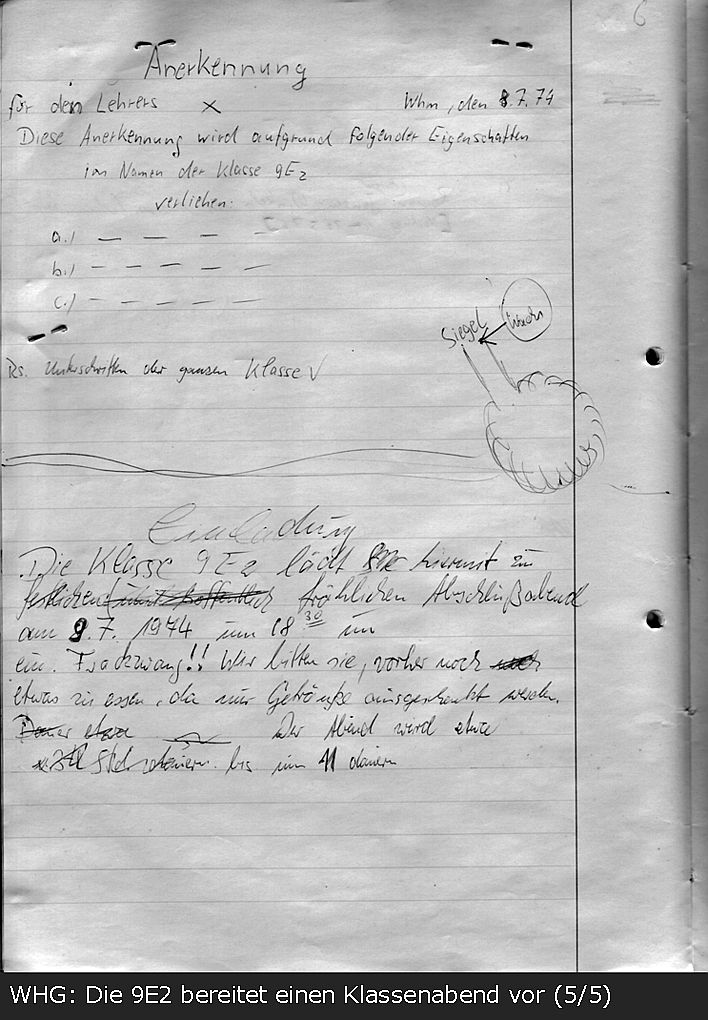 6
Anerkennung
für den Lehrers x Whm, den 8.7.74
Diese Anerkennung wird aufgrund folgender Eigenschaften
im Namen der Klasse 9E2
verliehen:
a.) — — — —
b.) — — — — —
c.) — — — — —
Siegel
Rs. Unterschriften der ganzen Klasse √
Einladung
Die Klasse 9E2 lädt Sie hiermit zu
festlichen fröhlichen Abschlußabend
am 8.7. 1974 um 18 30 im
ein. Frackzwang!! Wir bitten sie, vorher noch
etwas zu essen, da nur Getränke ausgeschenkt werden.
Dauer etwa Der Abend wird etwa
bis um 11 dauern
WHG: Die 9E2 bereitet einen Klassenabend vor (5/5)